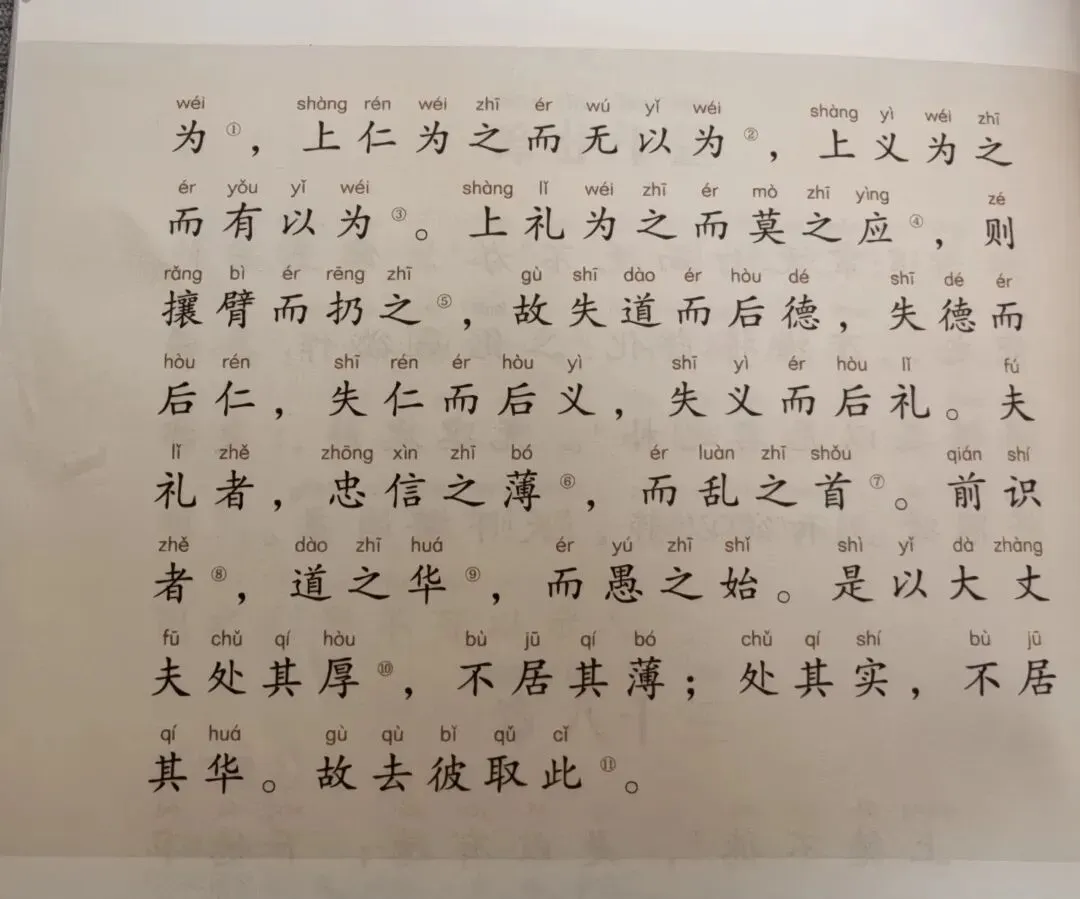 wéi shàng rén wéi zhī ér wú yǐ wéi shàng yì wéi zhī
为①，上仁为之而无以为②，上义为之
ér yǒu yǐ wéi shàng lǐ wéi zhī ér mò zhī yìng zé
而有以为③。上礼为之而莫之应④，则
rǎng bì ér rēng zhī gù shī dào ér hòu dé shī dé ér
攘臂而扔之⑤，故失道而后德，失德而
hòu rén shī rén ér hòu yì shī yì ér hòu lǐ fú
后仁，失仁而后义，失义而后礼。夫
lǐ zhě zhōng xìn zhī bó ér luàn zhī shǒu qián shí
礼者，忠信之薄⑥，而乱之首⑦。前识
zhě dào zhī huá ér yú zhī shǐ shì yǐ dà zhàng
者⑧，道之华⑨，而愚之始。是以大丈
fū chǔ qí hòu bù jū qí bó chǔ qí shí bù jū
夫处其厚⑩，不居其薄；处其实，不居
qí huá gù qù bǐ qǔ cǐ
其华。故去彼取此⑪。